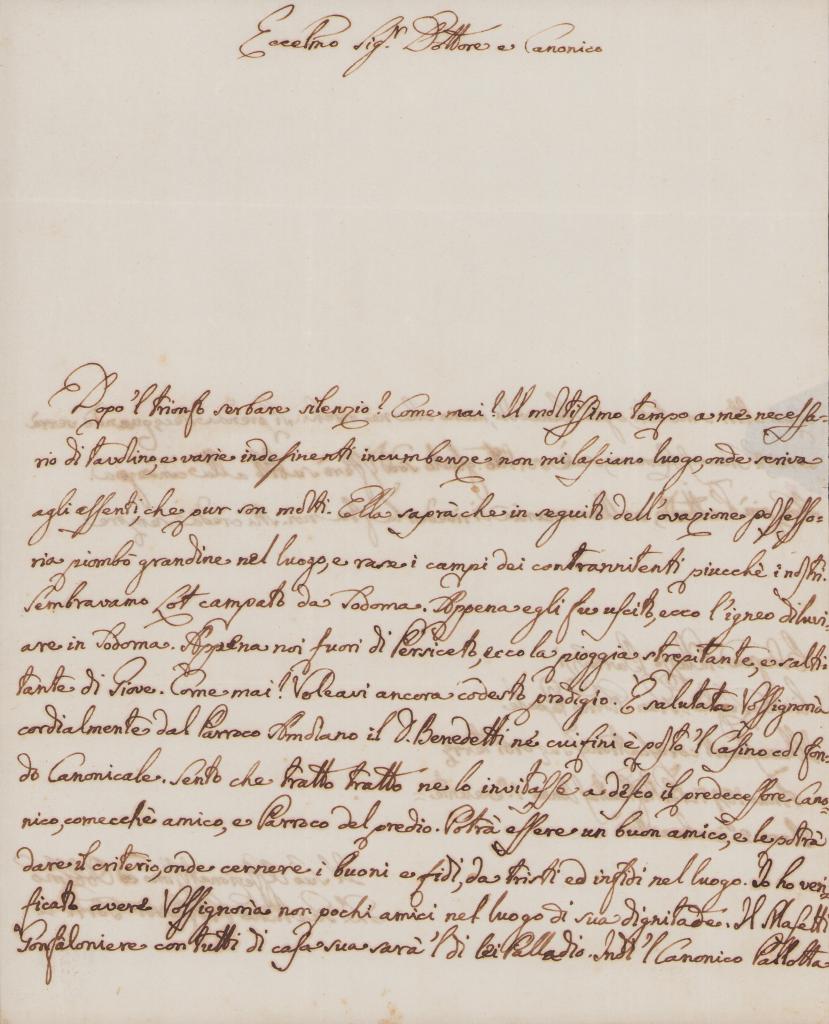 Eccelmo Sigr. Dottore e Canonico
Dopo 'l trionfo serbare silenzio? Come mai? Il moltissimo tempo a me necessa-
rio di tavolino, e varie indefinenti incumbenze non mi lasciano luogo, onde scriva
agli assenti, che pur son molti. Ella saprà che in seguito dell'ovazione possesso-
ria piombò grandine nel luogo, e rase i campi dei contrannitenti piucchè i nostri.
Sembravamo Lot campato da Sodoma. Appena egli fu uscito, ecco l'igneo diluvi-
are in Sodoma. Appena noi fuori di Persiceto, ecco la pioggia strepitante, e salti-
tante di Giove. Come mai? Voleavi ancora codesto prodigio. È salutata Vossignoria
cordialmente dal Parroco Amolano il D. Benedetti ne' cui fini è posto 'l Casino col fon-
do Canonicale. Sento che tratto tratto ne lo invitasse a desco il predecessore Cano-
nico, comecchè amico, e Parroco del predio. Potrà essere un buon amico, e le potrà
dare il criterio, onde cernere i buoni e fidi, da tristi ed infidi nel luogo. Io ho veri-
ficato avere Vossignoria non pochi amici nel luogo di sua dignitade. Il Masetti
Gonfaloniere con tutti di casa sua sarà 'l di lei Palladio. Indi 'l Canonico Pallotta